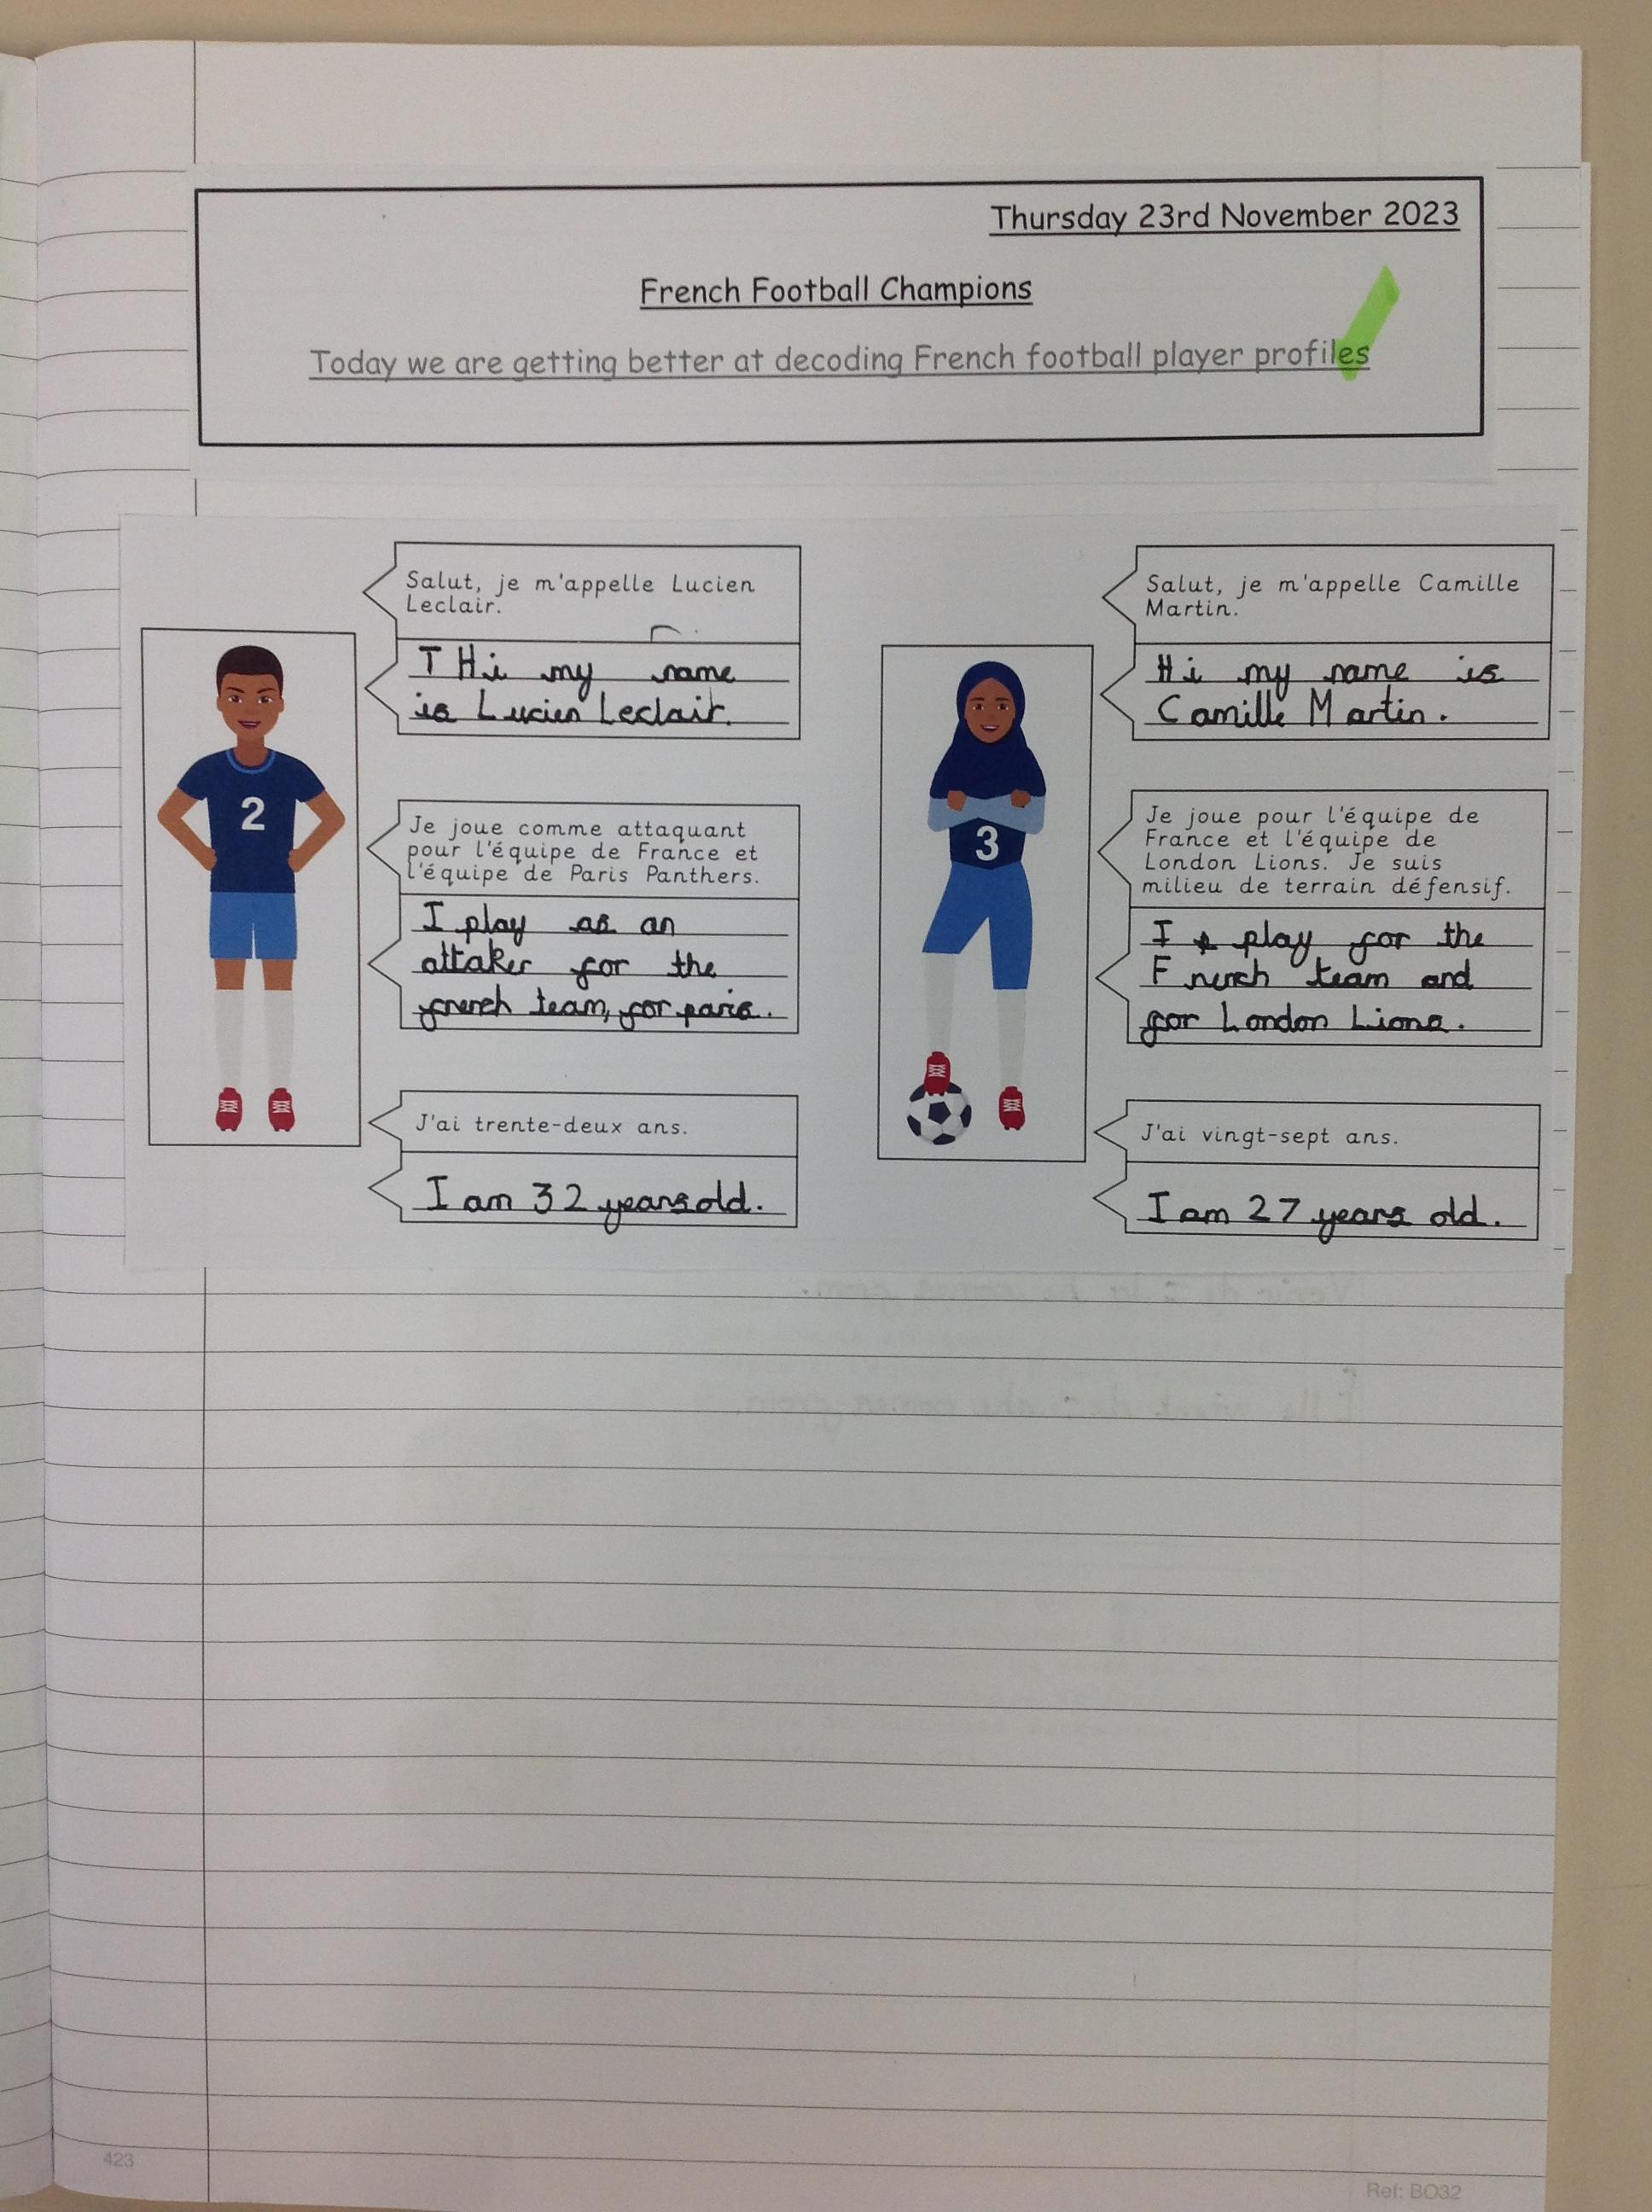 Thursday 23rd November 2023
French Football Champions
Today we are getting better at decoding French football player profiles
Salut, je m'appelle Lucien
Leclair.
T Hi my name
is Lucien Leclair.
2
Je joue comme attaquant
pour l'équipe de France et
l'équipe de Paris Panthers.
I play as an
attaker for the
french team, for paris.
J'ai trente-deux ans.
I am 32 years old.
Salut, je m'appelle Camille
Martin.
Hi my name is
Camille Martin.
3
Je joue pour l'équipe de
France et l'équipe de
London Lions. Je suis
milieu de terrain défensif.
I play for the
French team and
for London Lions.
J'ai vingt-sept ans.
I am 27 years old.
423
Ref: BO32